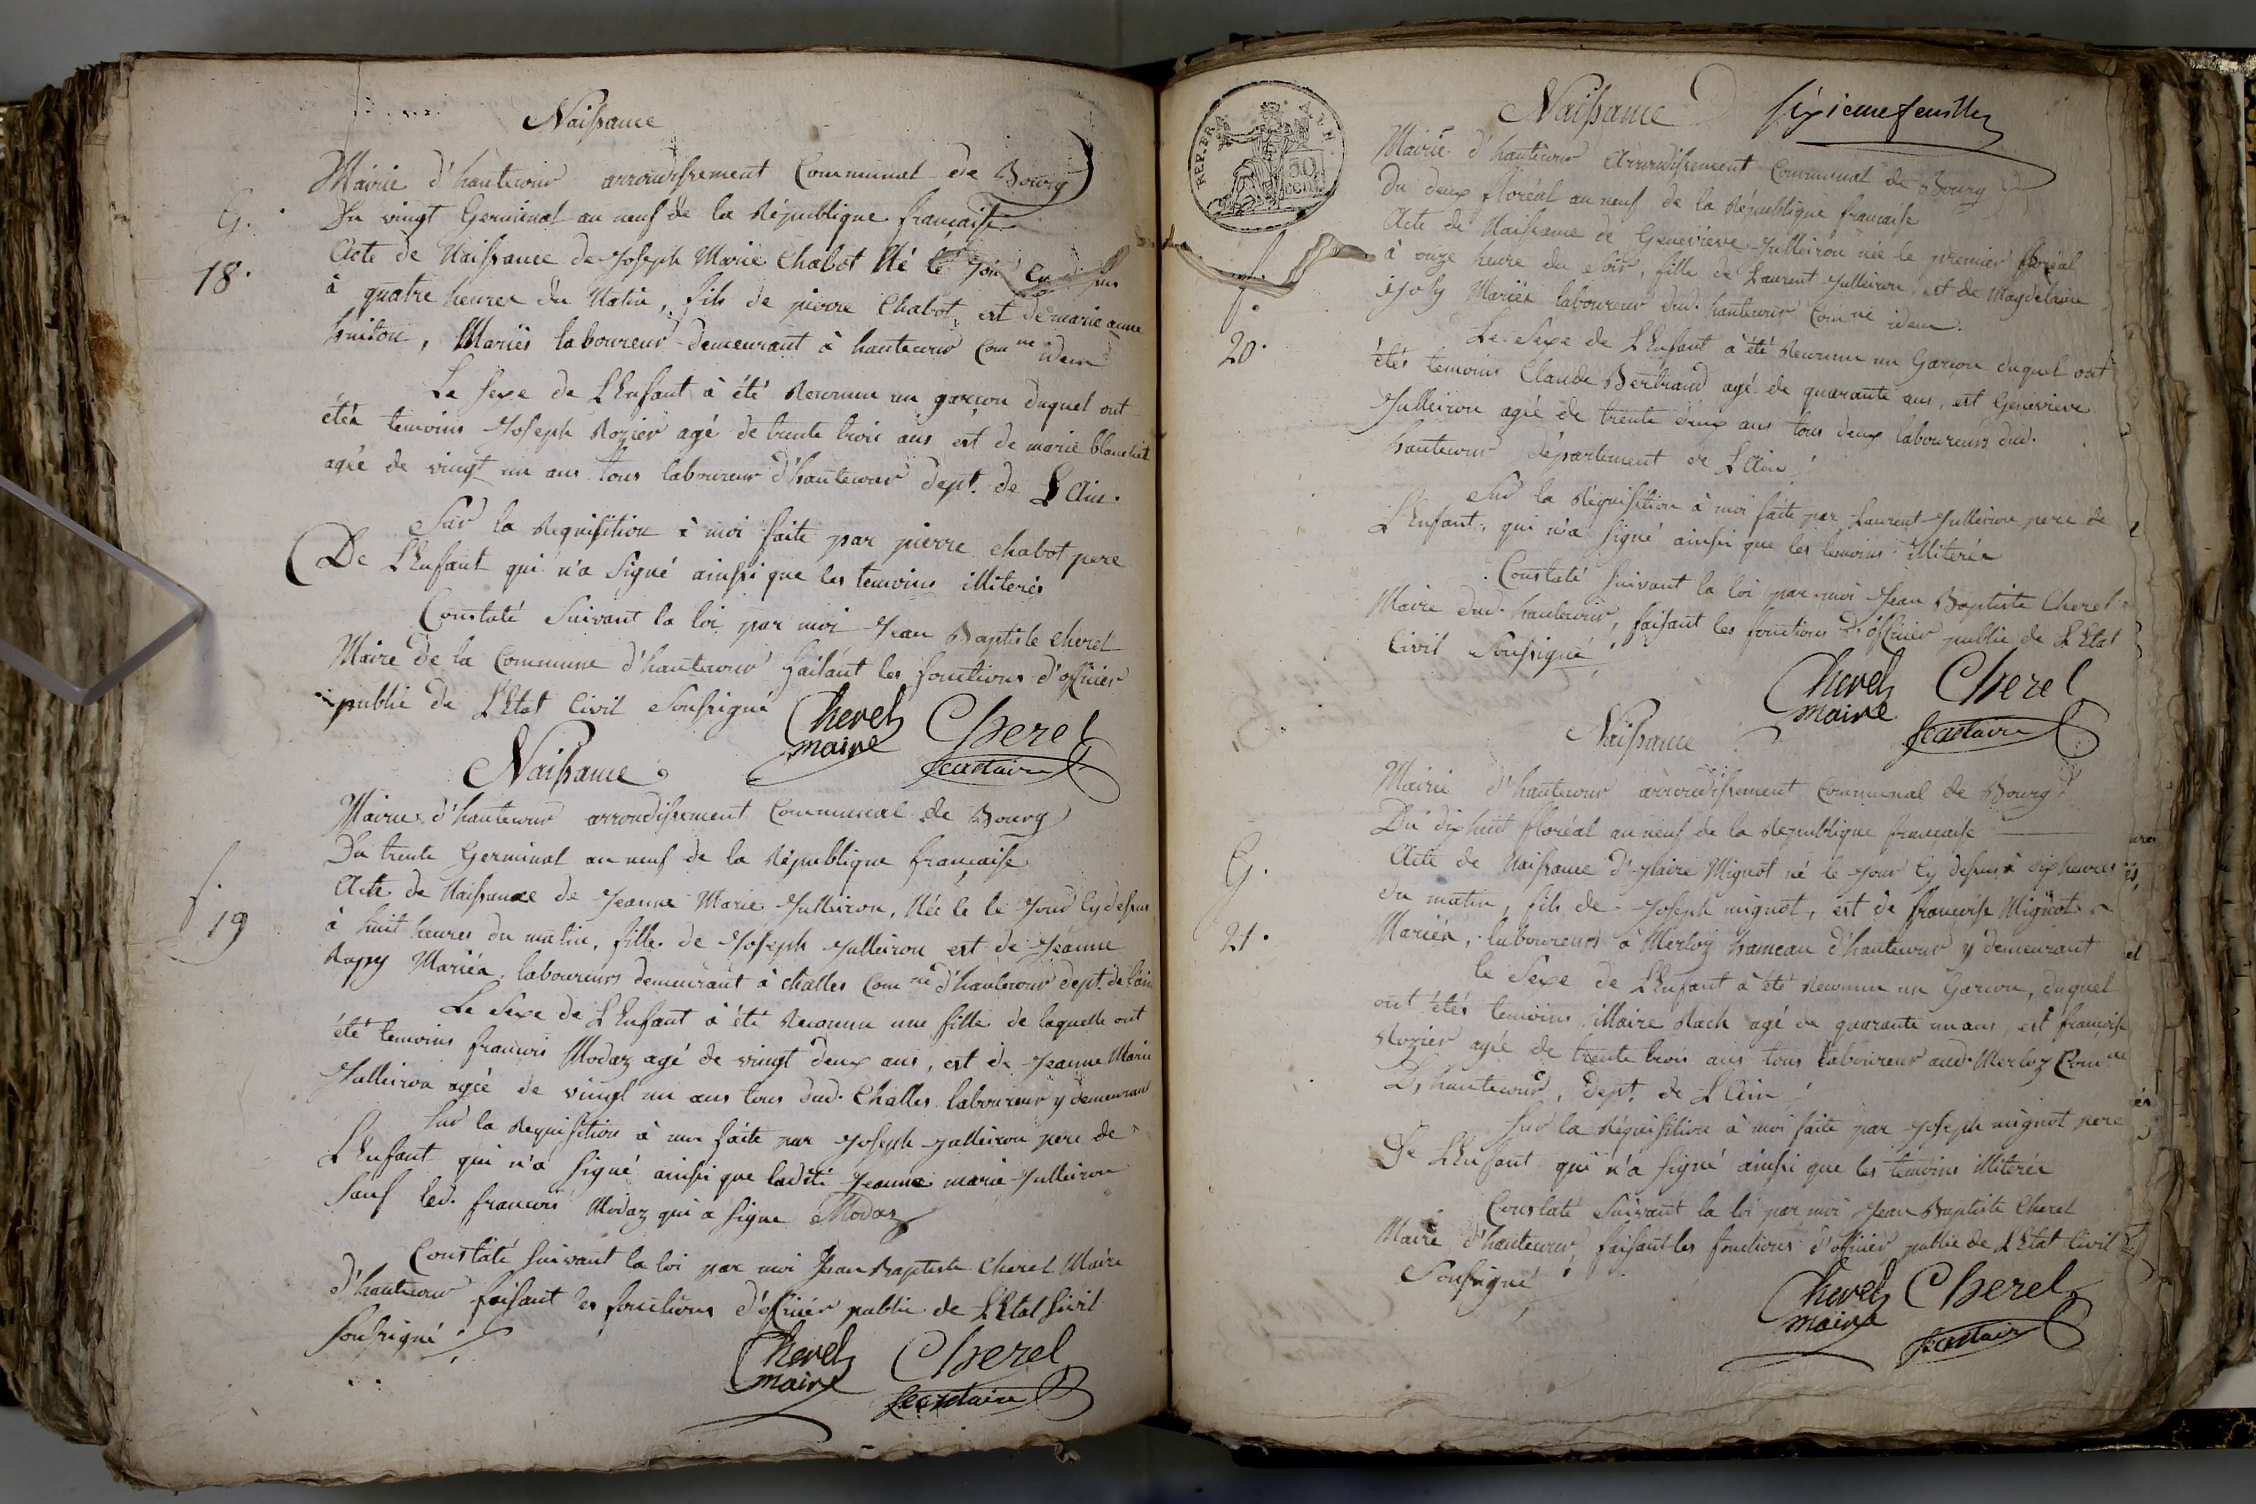 Naissance
Mairie d'hautecour arrondissement Communal de Bourg
G.
Du vingt Germinal an neuf de la République française
18.
Acte de Naissance de Joseph Marie Chabot Né le jour
à quatre heures du Matin, fils de pierre Chabot, est de marie anne
huiton, Mariés laboureur demeurant à hautecour Com.ne idem
Le sexe de L'Enfant à été Reconnu un garçon duquel ont
étés temoins Joseph Rozier agé de trente trois ans est de marie blanchet
agée de vingt un ans tous laboureur d'hautecour dept. de L'Ain.
Sur la Requisition à moi faite par pierre chabot pere
De L'Enfant qui n'a Signé ainsi que les temoins illiterés
Constaté Suivant la loi par moi Jean Baptiste Cherel
Maire de la Commune d'hautecour faisant les fonctions d'officier
public de L'Etat Civil Soussigné
Cherel Cherel
maire Secretaire
Naissance
Mairie d'hautecour arrondissement Communal de Bourg
Du trente Germinal an neuf de la République française
f.
Acte de Naissance de Jeanne Marie Julleiron, Née le le Jour Cy dessus
19
à huit heures du matin, fille de Joseph Julleiron est de Jeanne
Rapy Mariés, laboureurs demeurant à challes Com.ne d'hautecour dept. de l'ain
Le Sexe de L'Enfant à été Reconnu une fille de laquelle ont
été temoins francois Modaz agé de vingt deux ans, est de Jeanne Marie
Julleiron agée de vingt un ans tous dud. Challes laboureur y demeurant
Sur la Requisition à moi faite par Joseph Julleiron pere de
L'Enfant qui n'a signé ainsi que ladite Jeanne marie Julleiron
Sauf led. francois Modaz qui a signe Modaz
Constaté suivant la loi par moi Jean Baptiste Cherel Maire
d'hautecour faisant les fonctions d'officier public de L'Etat Sivil
Soussigné
Cherel Cherel
maire Secretaire
Naissance sixieme feuille
REP. FRA
50 cent
Mairie d'hautecour Arrondissement Communal de Bourg
Du deux floréal an neuf de la Republique française
Acte de Naissance de Genevieve Julleiron née le premier floréal
à onze heure du soir, fille de Laurent Julleiron, est de Magdelaine
f.
joly Mariés laboureur dud. hautecour Com.ne idem.
20.
Le Sexe de L'Enfant à été Reconnu un Garçon duquel ont
étés temoins Claude Bertrand agé de quarante ans, est Genevieve
Julleiron agée de trente deux ans tous deux laboureurs dud.
hautecour département de L'Ain
Sur la Réquisition à moi faite par Laurent Julleiron pere de
L'Enfant, qui n'a signé ainsi que les temoins illiterés
Constaté suivant la loi par moi Jean Baptiste Cherel
Maire dud. hautecour, faisant les fonctions d'officier public de L'Etat
Civil Soussigné
Cherel Cherel
maire Secretaire
Naissance
Mairie d'hautecour arrondissement Communal de Bourg
Du dix huit floréal an neuf de la Republique française
G.
Acte de Naissance d'ylaire Mignot né le jour Cy dessus à dix heures
du matin, fils de Joseph mignot, est de françoise Mignot
21.
Mariés, laboureurs à Merloz hameau d'hautecour y demeurant
le Sexe de L'Enfant à été Reconnu un Garçon, duquel
ont étés temoins illaire Rach agé de quarante un ans, est françoise
Rozier agée de trente trois ans tous laboureur aud. Merloz Com.ne
D'hautecour, dept. de L'Ain
Sur la Réquisition à moi faite par Joseph mignot pere
De L'Enfant qui n'a signé ainsi que les témoins illiterés
Constaté Suivant la loi par moi Jean Baptiste Cherel
Maire d'hautecour, faisant les fonctions d'officier public de L'Etat Civil
Soussigné
Cherel Cherel
maire Secretaire